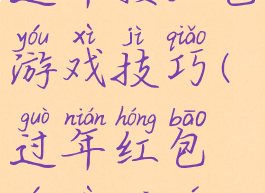 yóu xì jì qiǎo
游戏技巧(
guò nián hóng bāo
过年红包